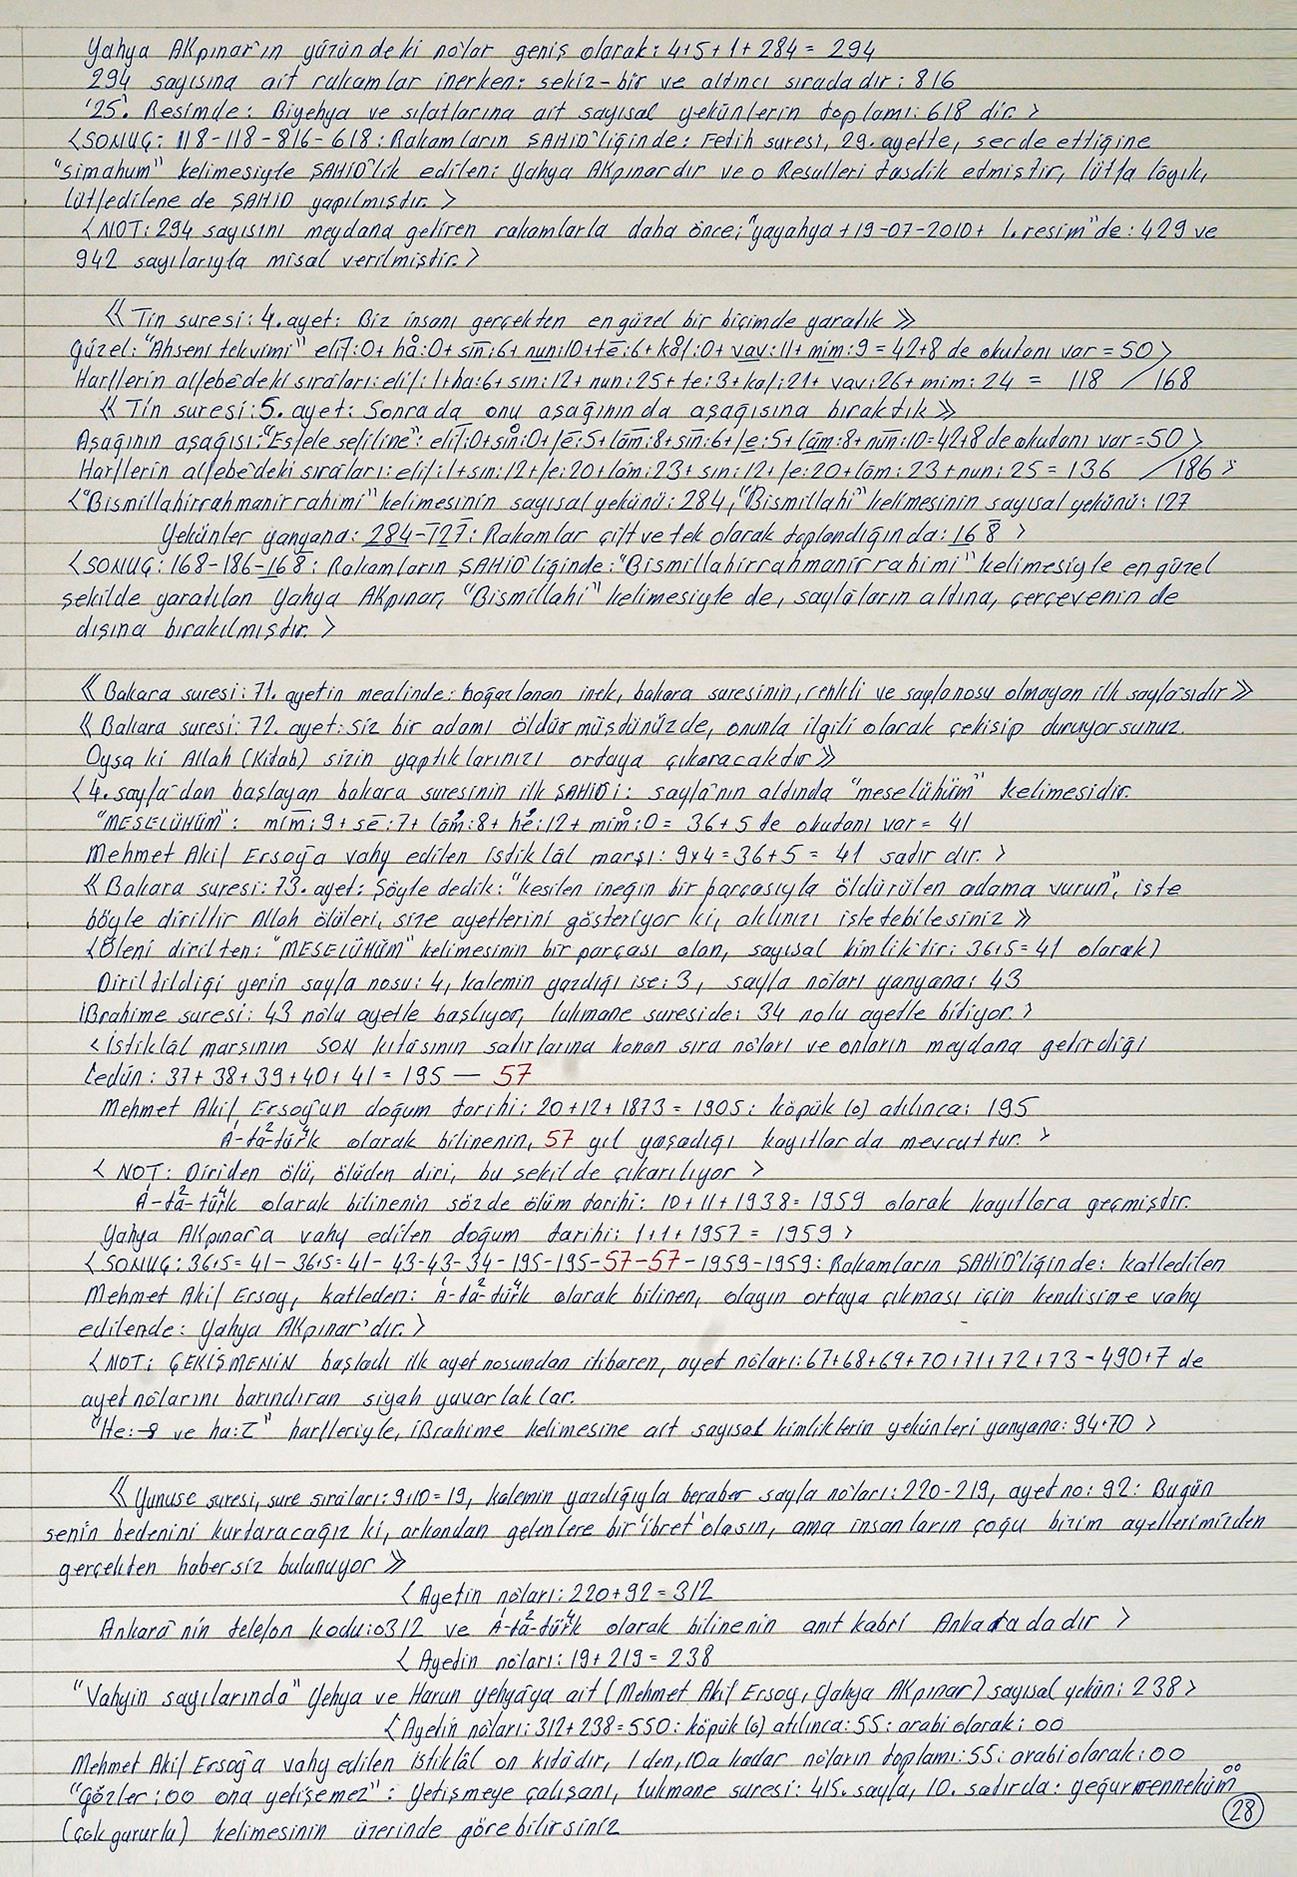 Yahya AKpınar'ın yüzündeki no'lar geniş olarak: 4+5+1+284= 294
294 sayısına ait rakamlar inerken: sekiz-bir ve altıncı sıradadır: 816
'25'. Resimde: Biyehya ve sıfatlarına ait sayısal yekünlerin toplamı: 618 dir. >
<SONUÇ: 118-118-816-618: Rakamların ŞAHİD'liğinde: Fetih suresi, 29. ayette, secde ettiğine
"simahum" kelimesiyle ŞAHİD'lik edilen: Yahya AKpınardır ve o Resulleri tasdik etmiştir, lütfa layık,
lütfedilene de ŞAHİD yapılmıştır. >
<NOT: 294 sayısını meydana getiren rakamlarla daha önce; "yayahya +19-07-2010+ 1. resim" de: 429 ve
942 sayılarıyla misal verilmiştir. >
《 Tin suresi: 4. ayet: Biz insanı gerçekten en güzel bir biçimde yarattık 》
Güzel: "Ahseni tekvimi" elif:0+ ha:0+ sin:6+ nun:10+ te:6+ kaf:0+ vav:11+ mim:9 = 42+8 de okutanı var = 50 >
Harflerin alfebe'deki sıraları: elif: 1+ha:6+ sin:12+ nun:25+ te:3+ kaf:21+ vav:26+ mim: 24 = 118 / 168
《 Tin suresi: 5. ayet: Sonra da onu aşağının da aşağısına bıraktık 》
Aşağının aşağısı: "Esfele sefiline": elif:0+sin:0+fe:5+lam:8+sin:6+fe:5+lam:8+nun:10=42+8 de okutanı var=50 >
Harflerin alfebe'deki sıraları: elif:1+sin:12+fe:20+lam:23+ sin:12+fe:20+lam:23+nun:25= 136 / 186 >
<"Bismillahirrahmanirrahimi" kelimesinin sayısal yekünü: 284, "Bismillahi" kelimesinin sayısal yekünü: 127
Yekünler yanyana: 284-127: Rakamlar çift ve tek olarak toplandığında: 168 >
<SONUÇ: 168-186-168: Rakamların ŞAHİD'liğinde: "Bismillahirrahmanirrahimi" kelimesiyle en güzel
şekilde yaratılan Yahya AKpınar, "Bismillahi" kelimesiyle de, sayfaların altına, çerçevenin de
dışına bırakılmıştır. >
《 Bakara suresi: 71. ayetin mealinde: boğazlanan inek, bakara suresinin, renkli ve sayfa nosu olmayan ilk sayfasıdır 》
《 Bakara suresi: 72. ayet: siz bir adamı öldürmüştünüzde, onunla ilgili olarak çekişip duruyorsunuz.
Oysa ki Allah (Kitab) sizin yaptıklarınızı ortaya çıkaracaktır 》
<4. sayfa'dan başlayan bakara suresinin ilk ŞAHİDİ: sayfa'nın altında "meselühüm" kelimesidir.
"MESELÜHÜM": mim:9+ se:7+ lam:8+ he:12+ mim:0= 36+5 te okutanı var= 41
Mehmet Akif Ersoy'a vahy edilen istiklâl marşı: 9x4=36+5 = 41 satır dır. >
《 Bakara suresi: 73. ayet: Şöyle dedik: "kesilen ineğin bir parçasıyla öldürülen adama vurun", işte
böyle diriltir Allah ölüleri, size ayetlerini gösteriyor ki, aklınızı işletebilesiniz 》
<Öleni dirilten: "MESELÜHÜM" kelimesinin bir parçası olan, sayısal kimliktir: 36+5=41 olarak)
Diriltildiği yerin sayfa nosu: 4, kalemin yazdığı ise: 3, sayfa no'ları yanyana: 43
İBrahime suresi: 43 no'lu ayetle başlıyor, lukmane suresi de: 34 nolu ayetle bitiyor. >
<İstiklâl marşının SON kıtasının satırlarına konan sıra no'ları ve onların meydana getirdiği
Ledün: 37+ 38+39+40+ 41= 195 — 57
Mehmet Akif Ersoy'un doğum tarihi: 20+12+1873= 1905: köpük (0) atılınca: 195
A-ta-türk olarak bilinenin, 57 yıl yaşadığı kayıtlarda mevcuttur. >
< NOT: Diriden ölü, ölüden diri, bu şekilde çıkarılıyor >
A-ta-türk olarak bilinenin sözde ölüm tarihi: 10+11+1938= 1959 olarak kayıtlara geçmiştir.
Yahya AKpınar'a vahy edilen doğum tarihi: 1+1+1957 = 1959 >
<SONUÇ: 36+5= 41 - 36+5= 41 - 43-43-34 - 195-195-57-57-1959-1959: Rakamların ŞAHİD'liğinde: katledilen
Mehmet Akif Ersoy, katleden: A-ta-türk olarak bilinen, olayın ortaya çıkması için kendisine vahy
edilende: Yahya AKpınar'dır. >
<NOT: ÇEKİŞMENİN başladı ilk ayet nosundan itibaren, ayet no'ları: 67+68+69+70+71+72+73-490+7 de
ayet no'larını barındıran siyah yuvarlaklar.
"He: ve ha:" harfleriyle, İBrahime kelimesine ait sayısal kimliklerin yekünleri yanyana: 94-70 >
《 Yunuse suresi, sure sıraları: 9+10=19, kalemin yazdığıyla beraber sayfa no'ları: 220-219, ayet no: 92: Bugün
senin bedenini kurtaracağız ki, arkandan gelenlere bir 'ibret' olasın, ama insanların çoğu bizim ayetlerimizden
gerçekten habersiz bulunuyor 》
<Ayetin no'ları: 220+92=312
Ankara'nin telefon kodu: 0312 ve A-ta-türk olarak bilinenin anıt kabri Ankara dadır >
<Ayetin no'ları: 19+219= 238
"Vahyin sayılarında" Yehya ve Harun yehya'ya ait (Mehmet Akif Ersoy, Yahya AKpınar) sayısal yekün: 238>
<Ayetin no'ları: 312+238=550: köpük (0) atılınca: 55: arabi olarak: oo
Mehmet Akif Ersoy'a vahy edilen istiklâl on kıta'dır, 1 den, 10 a kadar no'ların toplamı: 55: arabi olarak: oo
"Gözler: oo ona yetişemez": Yetişmeye çalışanı, lukmane suresi: 415. sayfa, 10. satırda: yeğurrenneküm
(çok gururlu) kelimesinin üzerinde görebilirsiniz
28